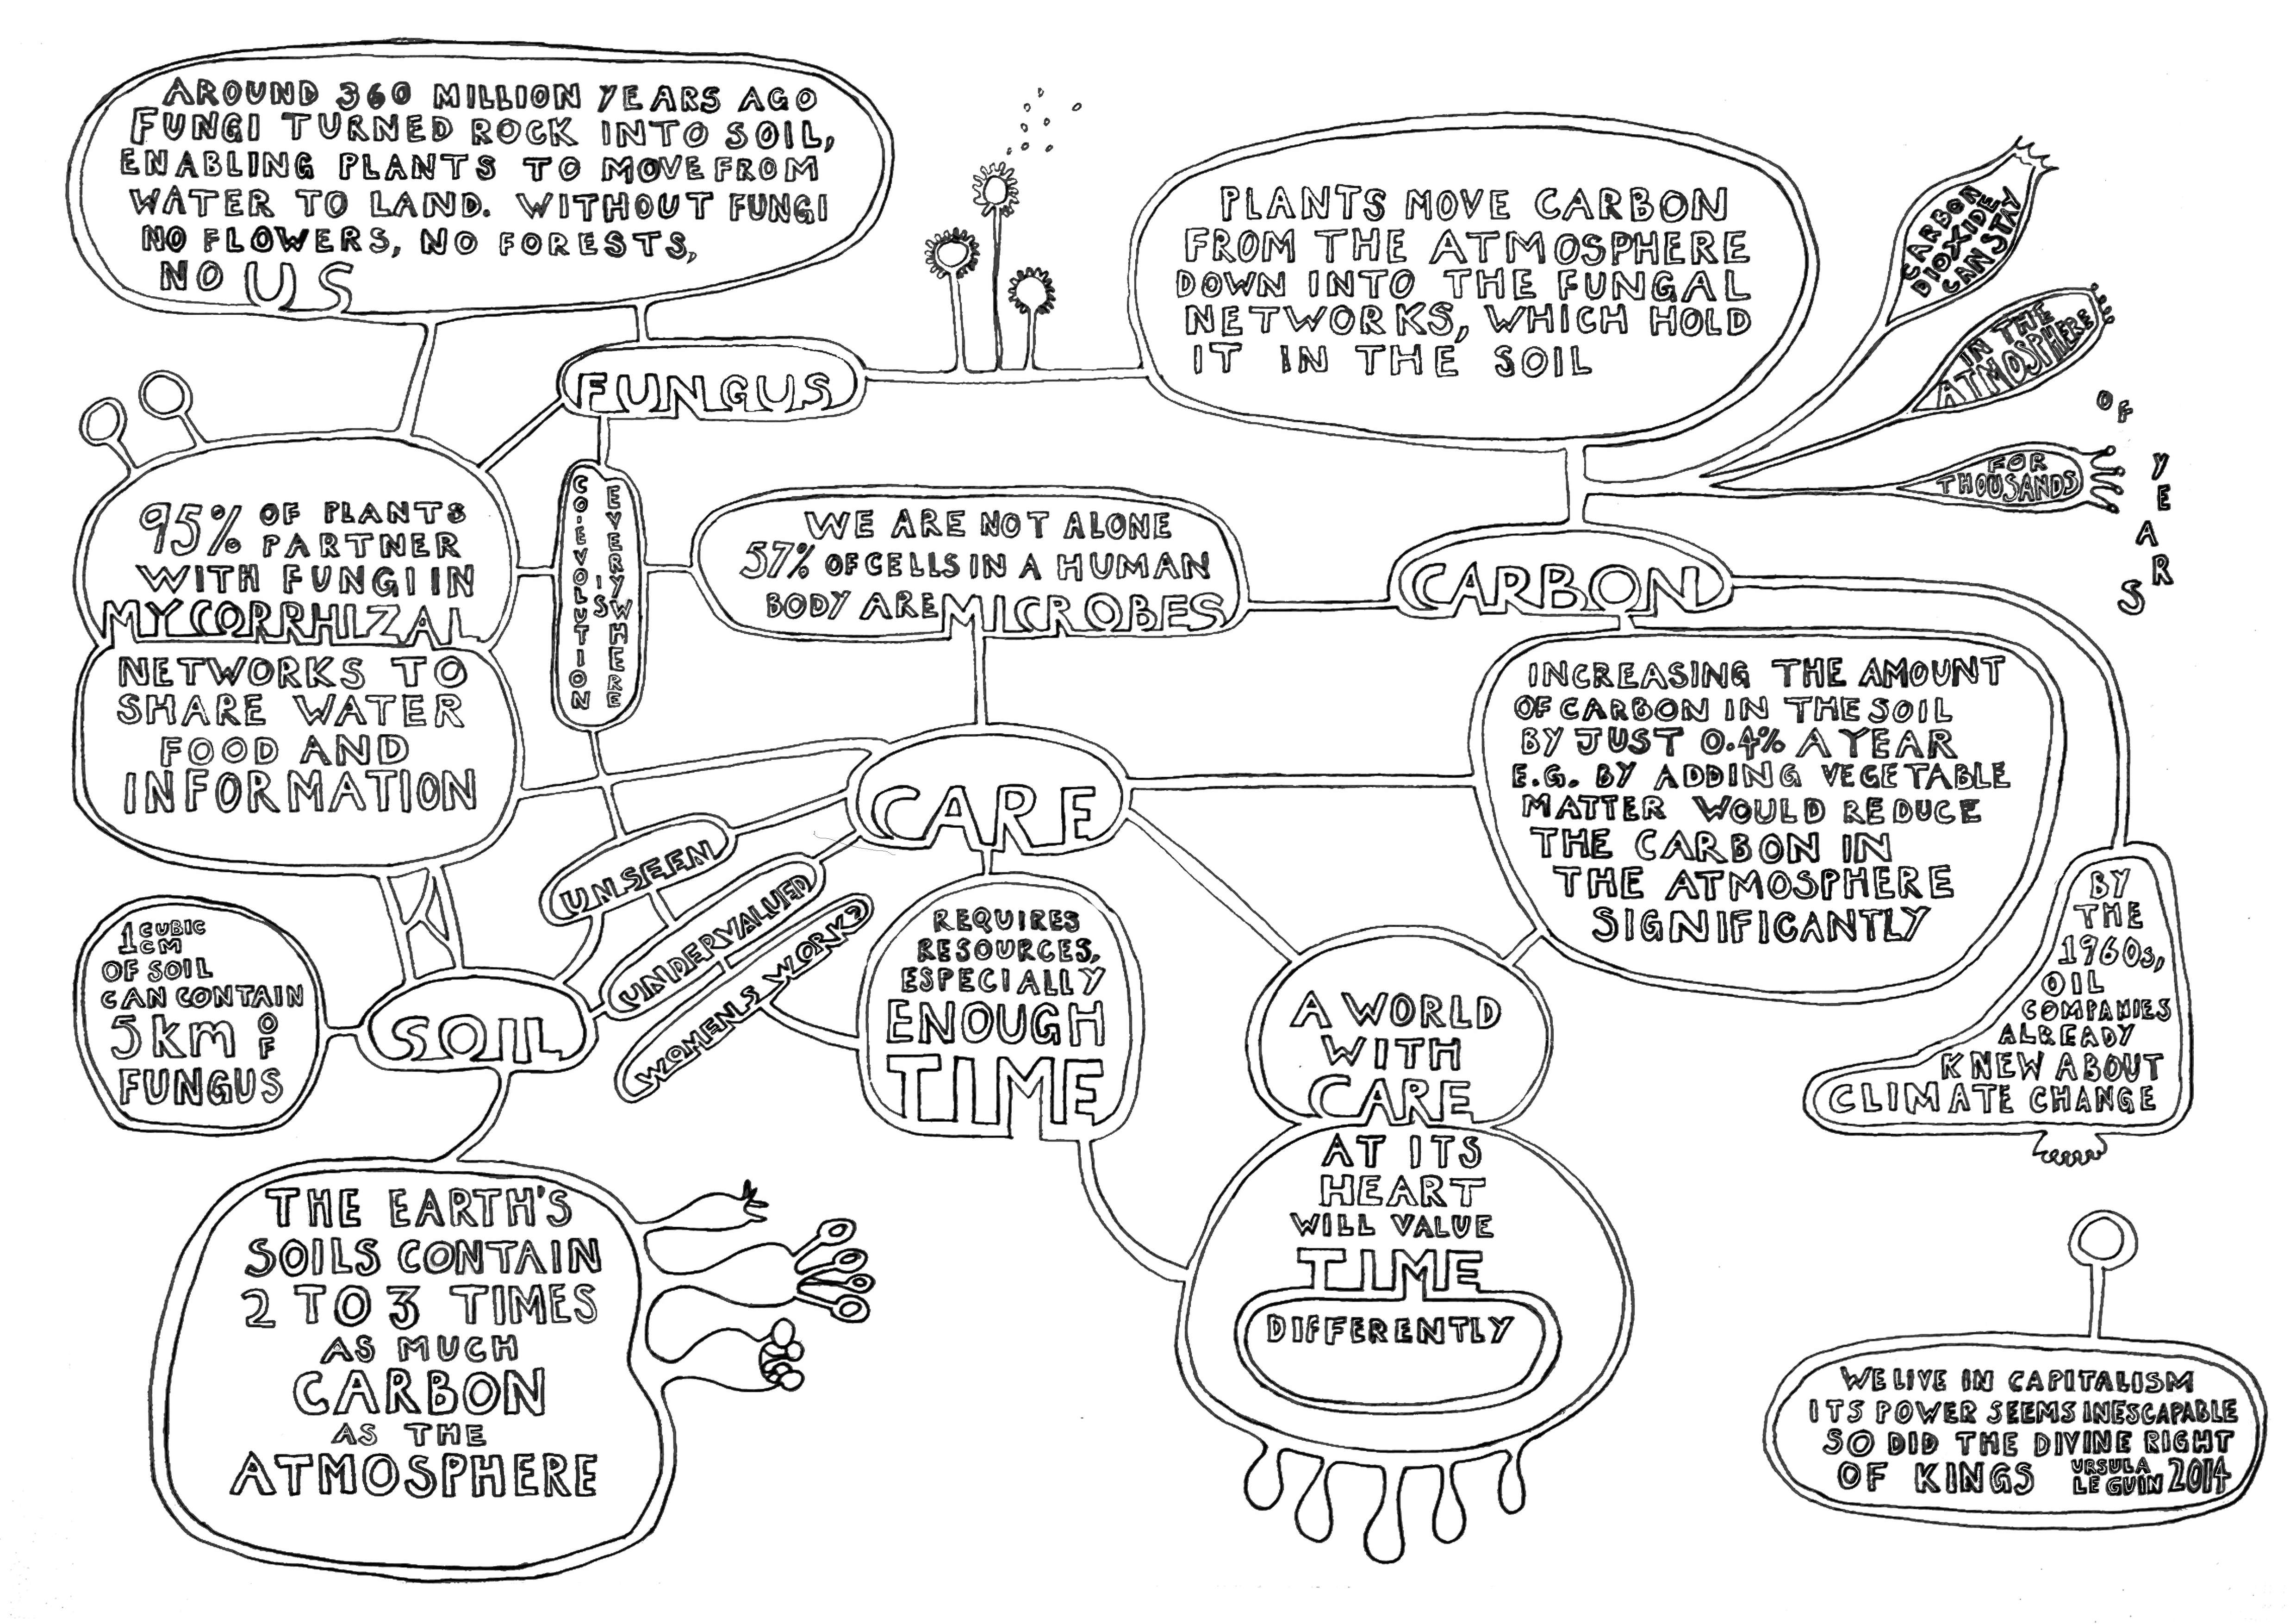 AROUND 360 MILLION YEARS AGO
FUNGI TURNED ROCK INTO SOIL,
ENABLING PLANTS TO MOVE FROM
WATER TO LAND. WITHOUT FUNGI
NO FLOWERS, NO FORESTS,
NO US
FUNGUS
PLANTS MOVE CARBON
FROM THE ATMOSPHERE
DOWN INTO THE FUNGAL
NETWORKS, WHICH HOLD
IT IN THE SOIL
CARBON
DIOXIDE
CAN STAY
IN THE
ATMOSPHERE
FOR
THOUSANDS
OF
YEARS
95% OF PLANTS
PARTNER
WITH FUNGI IN
MYCORRHIZAL
NETWORKS TO
SHARE WATER
FOOD AND
INFORMATION
CO-EVOLUTION
'S
EVERYWHERE
WE ARE NOT ALONE
57% OF CELLS IN A HUMAN
BODY ARE MICROBES
CARBON
INCREASING THE AMOUNT
OF CARBON IN THE SOIL
BY JUST 0.4% A YEAR
E.G. BY ADDING VEGETABLE
MATTER WOULD REDUCE
THE CARBON IN
THE ATMOSPHERE
SIGNIFICANTLY
BY
THE
1960s,
OIL
COMPANIES
ALREADY
KNEW ABOUT
CLIMATE CHANGE
CARE
UNSEEN
UNDERVALUED
WOMEN'S WORK?
REQUIRES
RESOURCES,
ESPECIALLY
ENOUGH
TIME
1 CUBIC
CM
OF SOIL
CAN CONTAIN
5km OF
FUNGUS
SOIL
THE EARTH'S
SOILS CONTAIN
2 TO 3 TIMES
AS MUCH
CARBON
AS THE
ATMOSPHERE
A WORLD
WITH
CARE
AT ITS
HEART
WILL VALUE
TIME
DIFFERENTLY
WE LIVE IN CAPITALISM
ITS POWER SEEMS INESCAPABLE
SO DID THE DIVINE RIGHT
OF KINGS URSULA
LE GUIN 2014